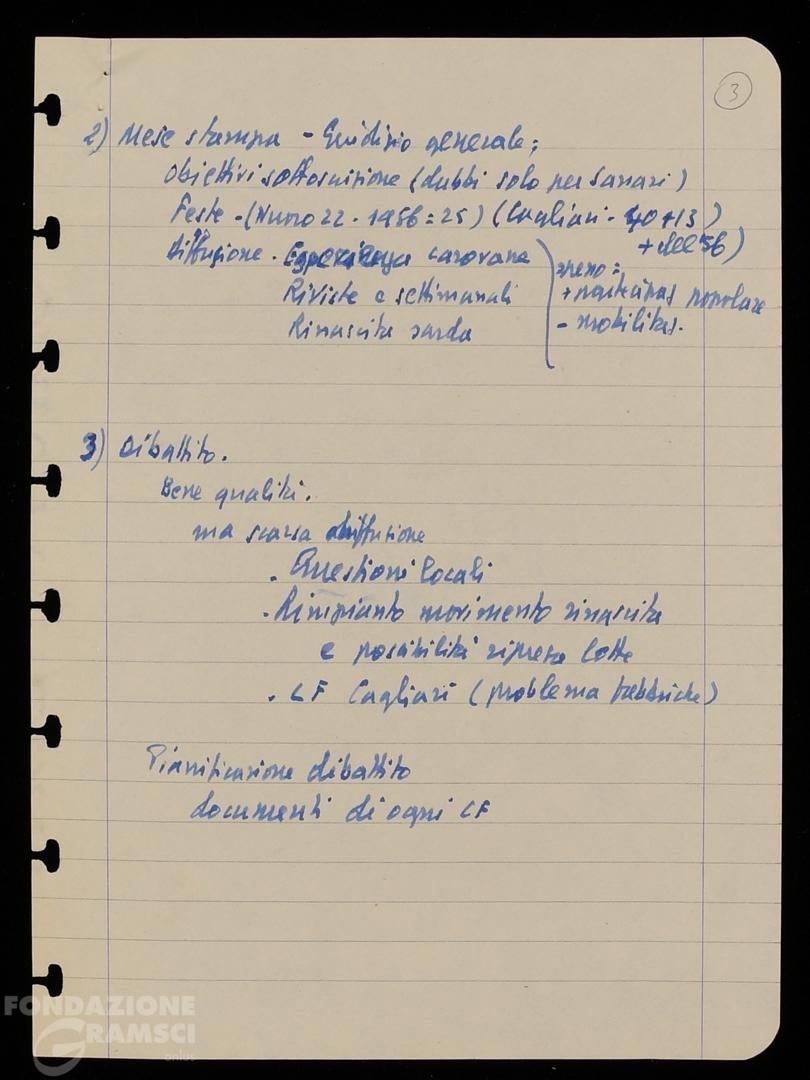 3
2) Mese stampa - Giudizio generale;
Obiettivi sottoscrizione (dubbi solo per Sassari)
Feste - (Nuoro 22 - 1956 = 25) (Cagliari - 40 + 13)
+ del '56)
Diffusione - Esperienza carovane
Riviste e settimanali
Rinascita sarda
meno =
+ partecipaz popolare
- mobilitaz.
3) Dibattito.
Bene qualità.
ma scarsa diffusione
. Questioni locali
. Rimpianto movimento rinascita
e possibilità ripresa lotte
. CF Cagliari (problema fabbriche)
Pianificazione dibattito
documenti di ogni CF
FONDAZIONE
GRAMSCI
onlus